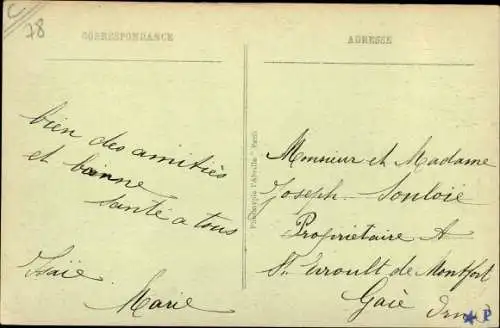 78
CORRESPONDANCE
ADRESSE
bien des amitiés
et bonne
santé a tous
Marie
Phototypie l'Abeille Paris
Monsieur et Madame
Joseph
Propriétaire A
St Evroult de Montfort
Gacé Orne
P